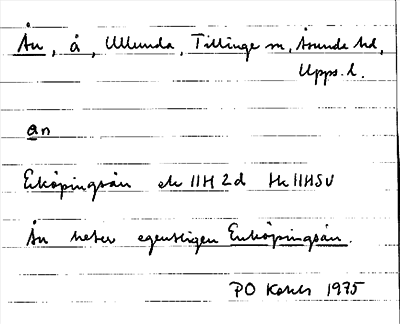 Ån, å, Ullunda, Tillinge sn, Åsunda hd,
Upps. l.
an
Enköpingsån ek 11H 2d Hk 11HSV
Ån heter egentligen Enköpingsån.
PO 1975